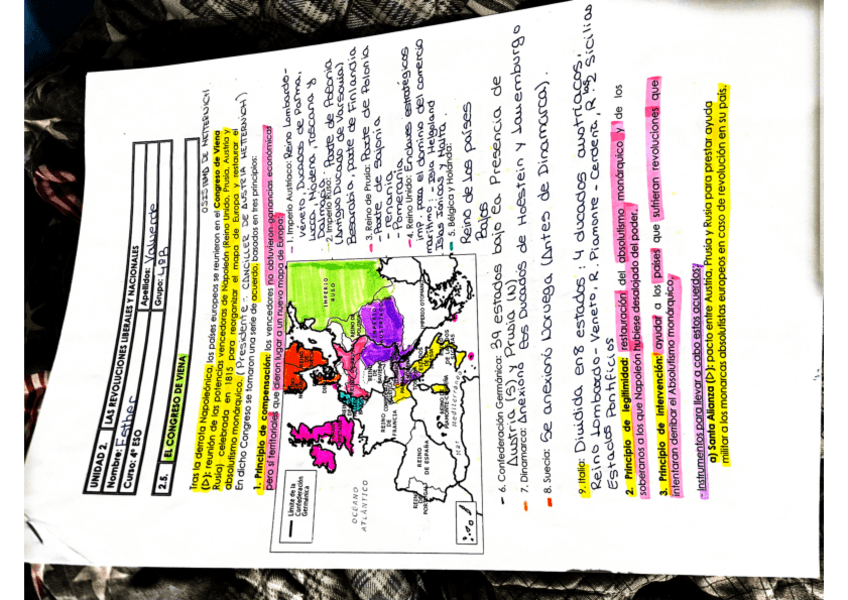 UNIDAD 2. LAS REVOLUCIONES LIBERALES Y NACIONALES
Nombre: Esther Apellidos: Valverde
Curso: 4º ESO Grupo: 4ºB
2.5. EL CONGRESO DE VIENA
O SISTEMA DE METTERNICH
Tras la derrota Napoleónica, los países europeos se reunieron en el Congreso de Viena
(D): reunión de las potencias vencedoras de Napoleón (Reino Unido, Prusia, Austria y
Rusia) celebrada en 1815 para reorganizar el mapa de Europa y restaurar el
absolutismo monárquico. (Presidente: CANCILLER DE AUSTRIA METTERNICH)
En dicho Congreso se tomaron una serie de acuerdo, basados en tres principios:
1. Principio de compensación: los vencedores no obtuvieron ganancias económicas
pero sí territoriales que dieron lugar a un nuevo mapa de Europa:
Límite de la
Confederación
Germánica
OCEANO
ATLÁNTICO
IMPERIO
RUSO
REINO
DE
FRANCIA
REINO
DE ESPAÑA
REINO DE
PORTUGAL
Mar Mediterráneo
IMPERIO OTOMANO
- 1. Imperio Austríaco: Reino Lombardo-
véneto, Ducados de Parma,
Luca, Módena, Toscana y
Dalmacia.
- 2. Imperio Ruso: Parte de Polonia
(Antiguo Ducado de Varsovia)
Besarabia, parte de Finlandia
- 3. Reino de Prusia: Parte de Polonia
- Parte de Sajonia
- Renania
- Pomerania
- 4. Reino Unido: Enclaves estratégicos
imp. para el dominio del comercio
marítimo: Isla Helgoland
Islas Jónicas y Malta.
- 5. Bélgica y Holanda:
Reino de los países
Bajos
- 6. Confederación Germánica: 39 estados bajo la Presencia de
Austria (S) y Prusia (N)
- 7. Dinamarca: Anexionó los Ducados de Holstein y Lauemburgo
- 8. Suecia: Se anexionó Noruega (Antes de Dinamarca).
9. Italia: Dividida en 8 estados: 4 ducados austríacos,
Reino Lombardo-Veneto, R. Piamonte-Cerdeña, R. las 2 Sicilias
Estados Pontificios
2. Principio de legitimidad: restauración del absolutismo monárquico y de los
soberanos a los que Napoleón hubiese desalojado del poder.
3. Principio de intervención: ayudar a los países que sufrieran revoluciones que
intentaran derribar el Absolutismo monárquico.
- Instrumentos para llevar a cabo estos acuerdos:
a) Santa Alianza (D): pacto entre Austria, Prusia y Rusia para prestar ayuda
militar a los monarcas absolutistas europeos en caso de revolución en su país.